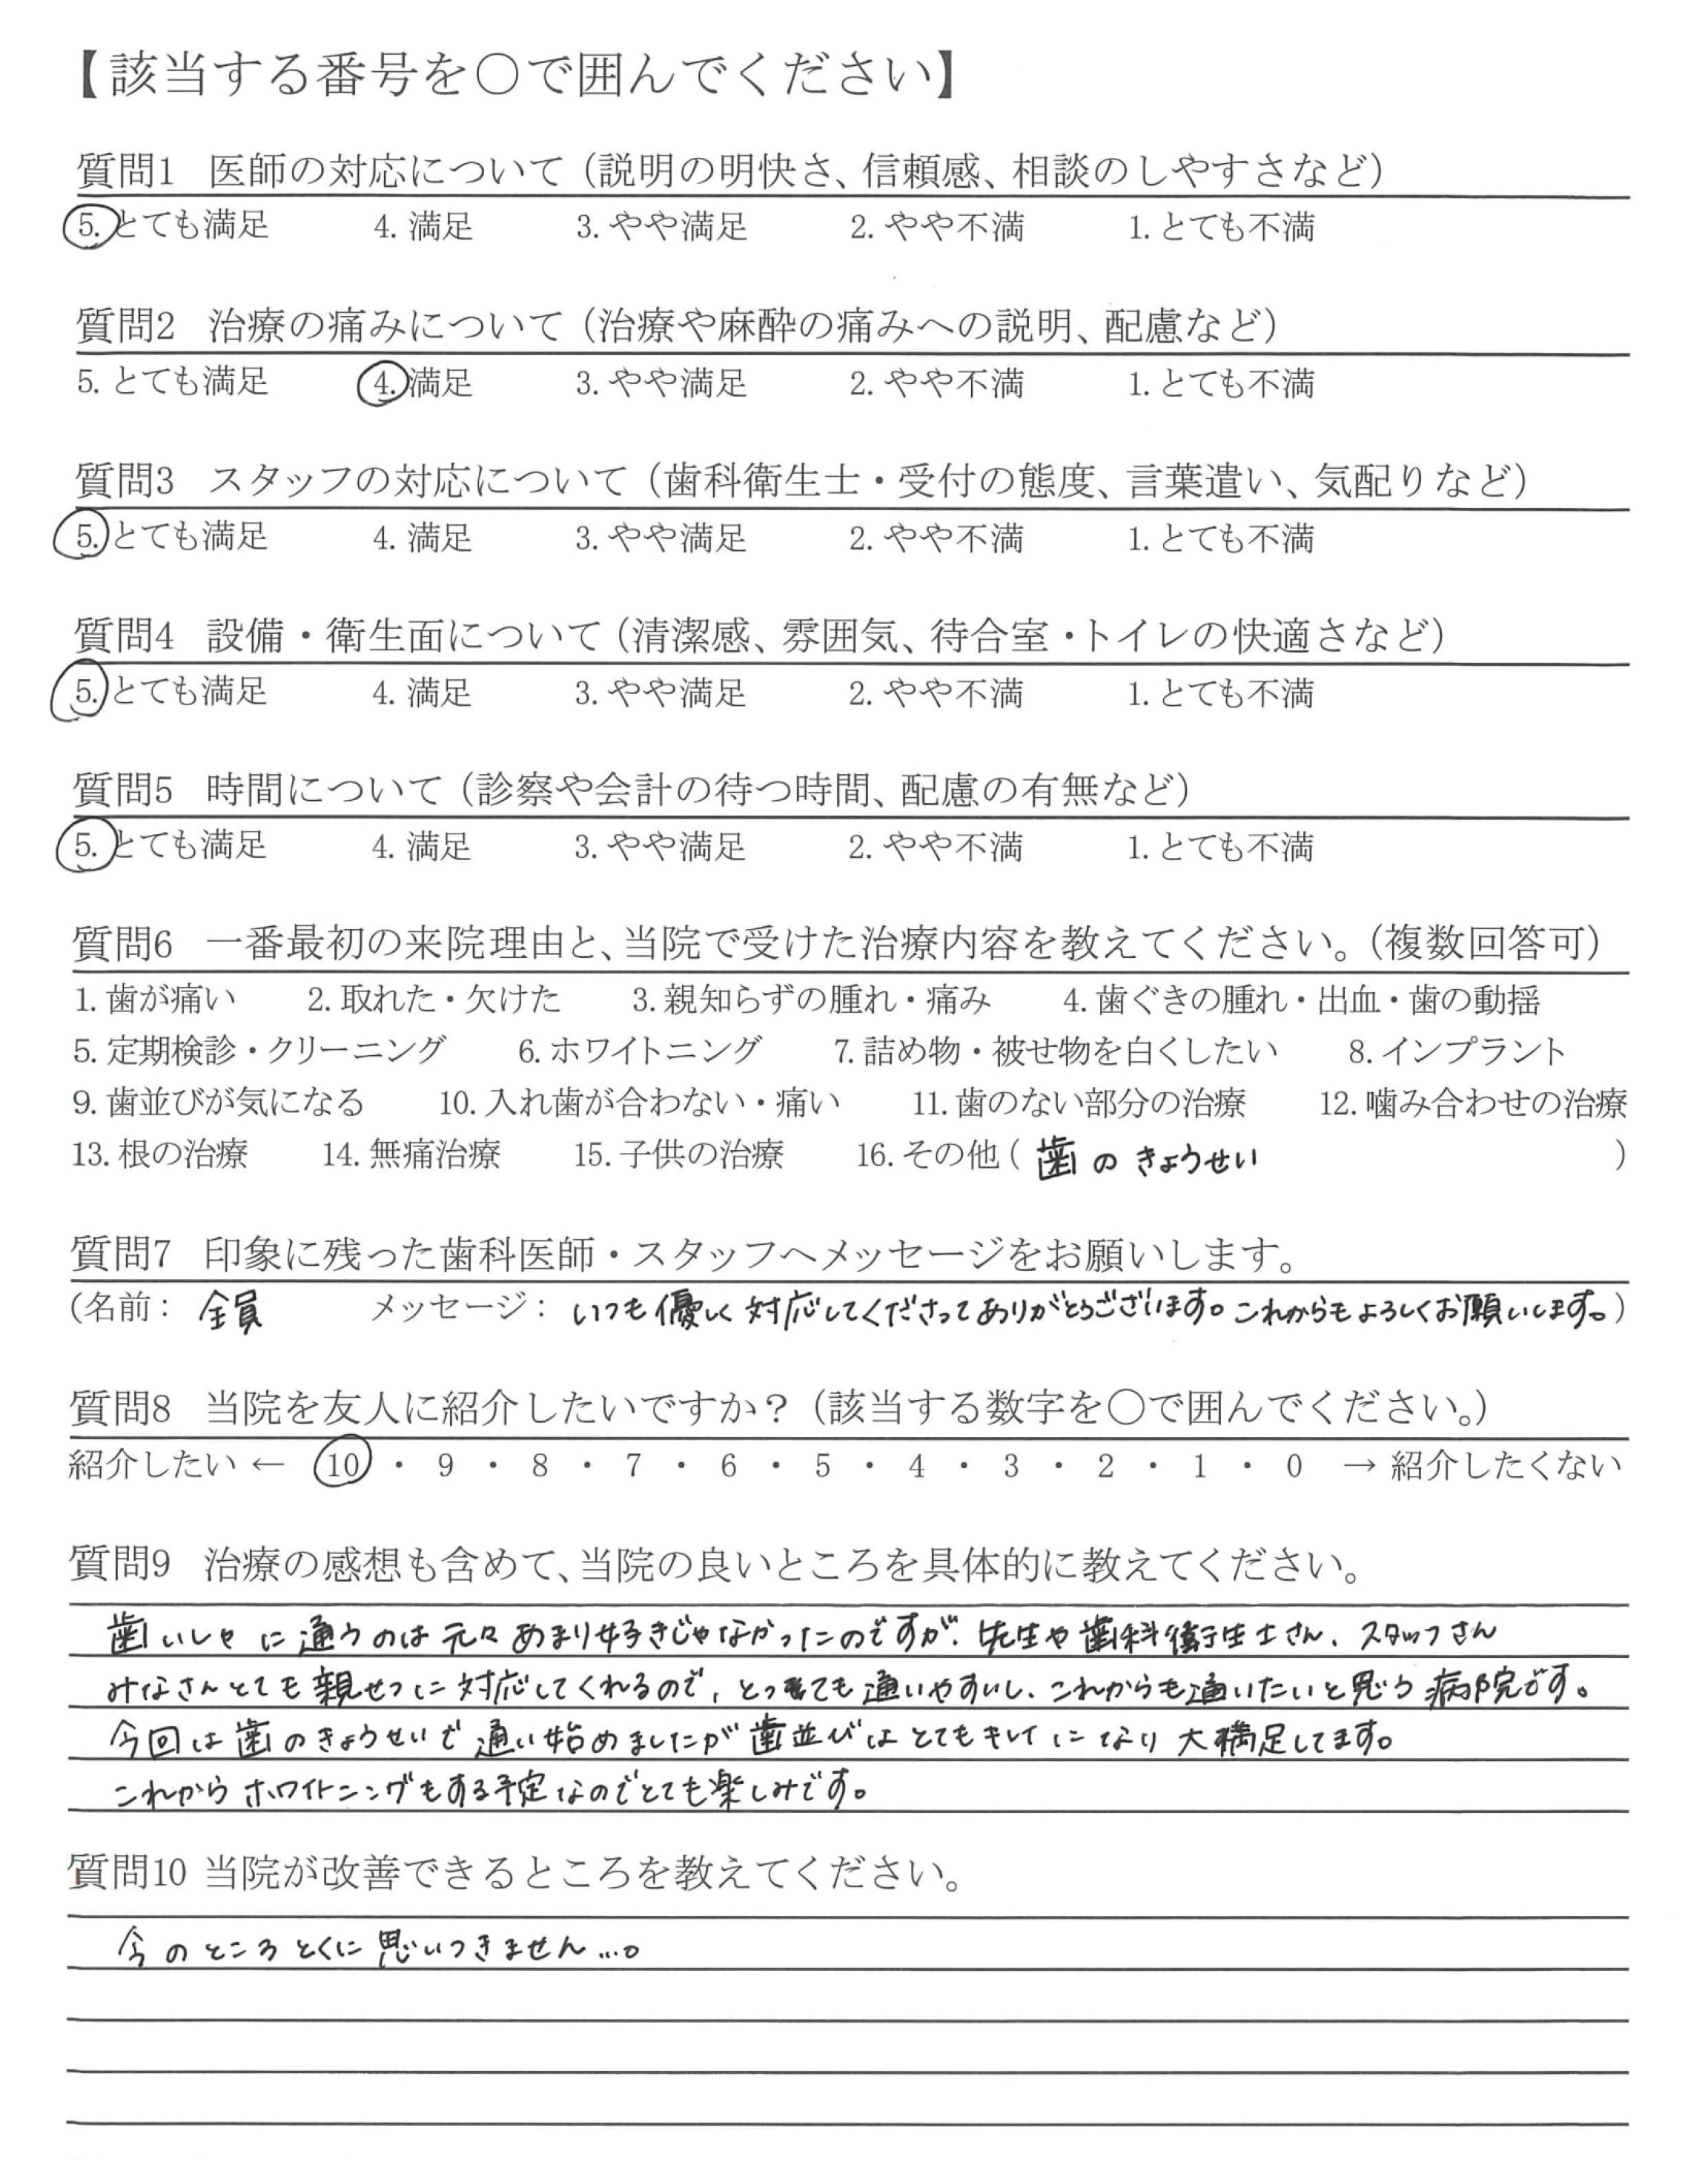 【該当する番号を〇で囲んでください】
質問1 医師の対応について（説明の明快さ、信頼感、相談のしやすさなど）
5. とても満足 4. 満足 3. やや満足 2. やや不満 1. とても不満
質問2 治療の痛みについて（治療や麻酔の痛みへの説明、配慮など）
5. とても満足 4. 満足 3. やや満足 2. やや不満 1. とても不満
質問3 スタッフの対応について（歯科衛生士・受付の態度、言葉遣い、気配りなど）
5. とても満足 4. 満足 3. やや満足 2. やや不満 1. とても不満
質問4 設備・衛生面について（清潔感、雰囲気、待合室・トイレの快適さなど）
5. とても満足 4. 満足 3. やや満足 2. やや不満 1. とても不満
質問5 時間について（診察や会計の待つ時間、配慮の有無など）
5. とても満足 4. 満足 3. やや満足 2. やや不満 1. とても不満
質問6 一番最初の来院理由と、当院で受けた治療内容を教えてください。（複数回答可）
1. 歯が痛い 2. 取れた・欠けた 3. 親知らずの腫れ・痛み 4. 歯ぐきの腫れ・出血・歯の動揺
5. 定期検診・クリーニング 6. ホワイトニング 7. 詰め物・被せ物を白くしたい 8. インプラント
9. 歯並びが気になる 10. 入れ歯が合わない・痛い 11. 歯のない部分の治療 12. 噛み合わせの治療
13. 根の治療 14. 無痛治療 15. 子供の治療 16. その他（歯のきょうせい）
質問7 印象に残った歯科医師・スタッフへメッセージをお願いします。
（名前：全員 メッセージ：いつも優しく対応してくださってありがとうございます。これからもよろしくお願いします。）
質問8 当院を友人に紹介したいですか？（該当する数字を〇で囲んでください。）
紹介したい ← 10 ・ 9 ・ 8 ・ 7 ・ 6 ・ 5 ・ 4 ・ 3 ・ 2 ・ 1 ・ 0 → 紹介したくない
質問9 治療の感想も含めて、当院の良いところを具体的に教えてください。
歯いしゃに通うのは元々あまり好きじゃなかったのですが、先生や歯科衛生士さん、スタッフさん
みなさんとても親せつに対応してくれるので、とっても通いやすいし、これからも通いたいと思う病院です。
今回は歯のきょうせいで通い始めましたが歯並びはとてもキレイになり大満足してます。
これからホワイトニングもする予定なのでとても楽しみです。
質問10 当院が改善できるところを教えてください。
今のところとくに思いつきません…。